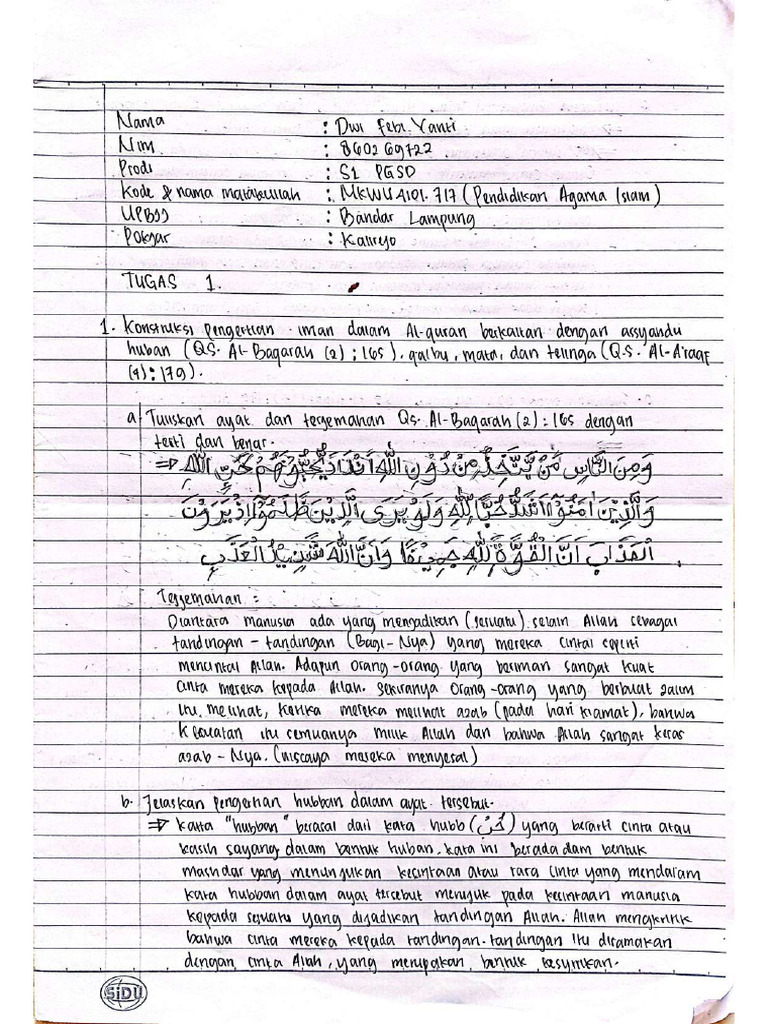 Nama : Dwi Febi Yanti
Nim : 860269722
Prodi : S1 PGSD
Kode & nama matakuliah : MKWU4101.717 (Pendidikan Agama Islam)
UPBJJ : Bandar Lampung
Pokjar : Kalirejo
TUGAS 1.
1. Konstruksi pengertian iman dalam Al-quran berkaitan dengan assyandu
huban (QS. Al-Baqarah (2) : 165), qalbu, mata, dan telinga (Q.S. Al-A'raaf
(4) : 179).
a. Tuliskan ayat dan terjemahan Qs. Al-Baqarah (2) : 165 dengan
teliti dan benar.
⇒ وَمِنَ النَّاسِ مَنْ يَّتَّخِذُ مِنْ دُوْنِ اللّٰهِ اَنْدَادًا يُّحِبُّوْنَهُمْ كَحُبِّ اللّٰهِ
وَالَّذِيْنَ اٰمَنُوْٓا اَشَدُّ حُبًّا لِّلّٰهِ وَلَوْ يَرَى الَّذِيْنَ ظَلَمُوْٓا اِذْ يَرَوْنَ
الْعَذَابَ اَنَّ الْقُوَّةَ لِلّٰهِ جَمِيْعًا وَاَنَّ اللّٰهَ شَدِيْدُ الْعَذَبِ .
Terjemahan :
Diantara manusia ada yang menjadikan (sesuatu) selain Allah sebagai
tandingan - tandingan (Bagi - Nya) yang mereka cintai seperti
mencintai Allah. Adapun orang-orang yang beriman sangat kuat
cinta mereka kepada Allah. Sekiranya orang-orang yang berbuat zalim
itu melihat, ketika mereka melihat azab (pada hari kiamat), bahwa
kekuatan itu semuanya milik Allah dan bahwa Allah sangat keras
azab - Nya. (niscaya mereka menyesal)
b. Jelaskan pengertian hubban dalam ayat tersebut.
⇒ Kata "hubban" berasal dari kata hubb (حُبّ) yang berarti cinta atau
kasih sayang dalam bentuk huban. kata ini berada dam bentuk
masdar yang menunjukan kecintaan atau rara cinta yang mendalam
kata hubban dalam ayat tersebut merujuk pada kecintaan manusia
kepada sesuatu yang dijadikan tandingan Allah. Allah mengkritik
bahwa cinta mereka kepada tandingan-tandingan itu disamakan
dengan cinta Allah, yang merupakan bentuk kesyirikan.
SiDU